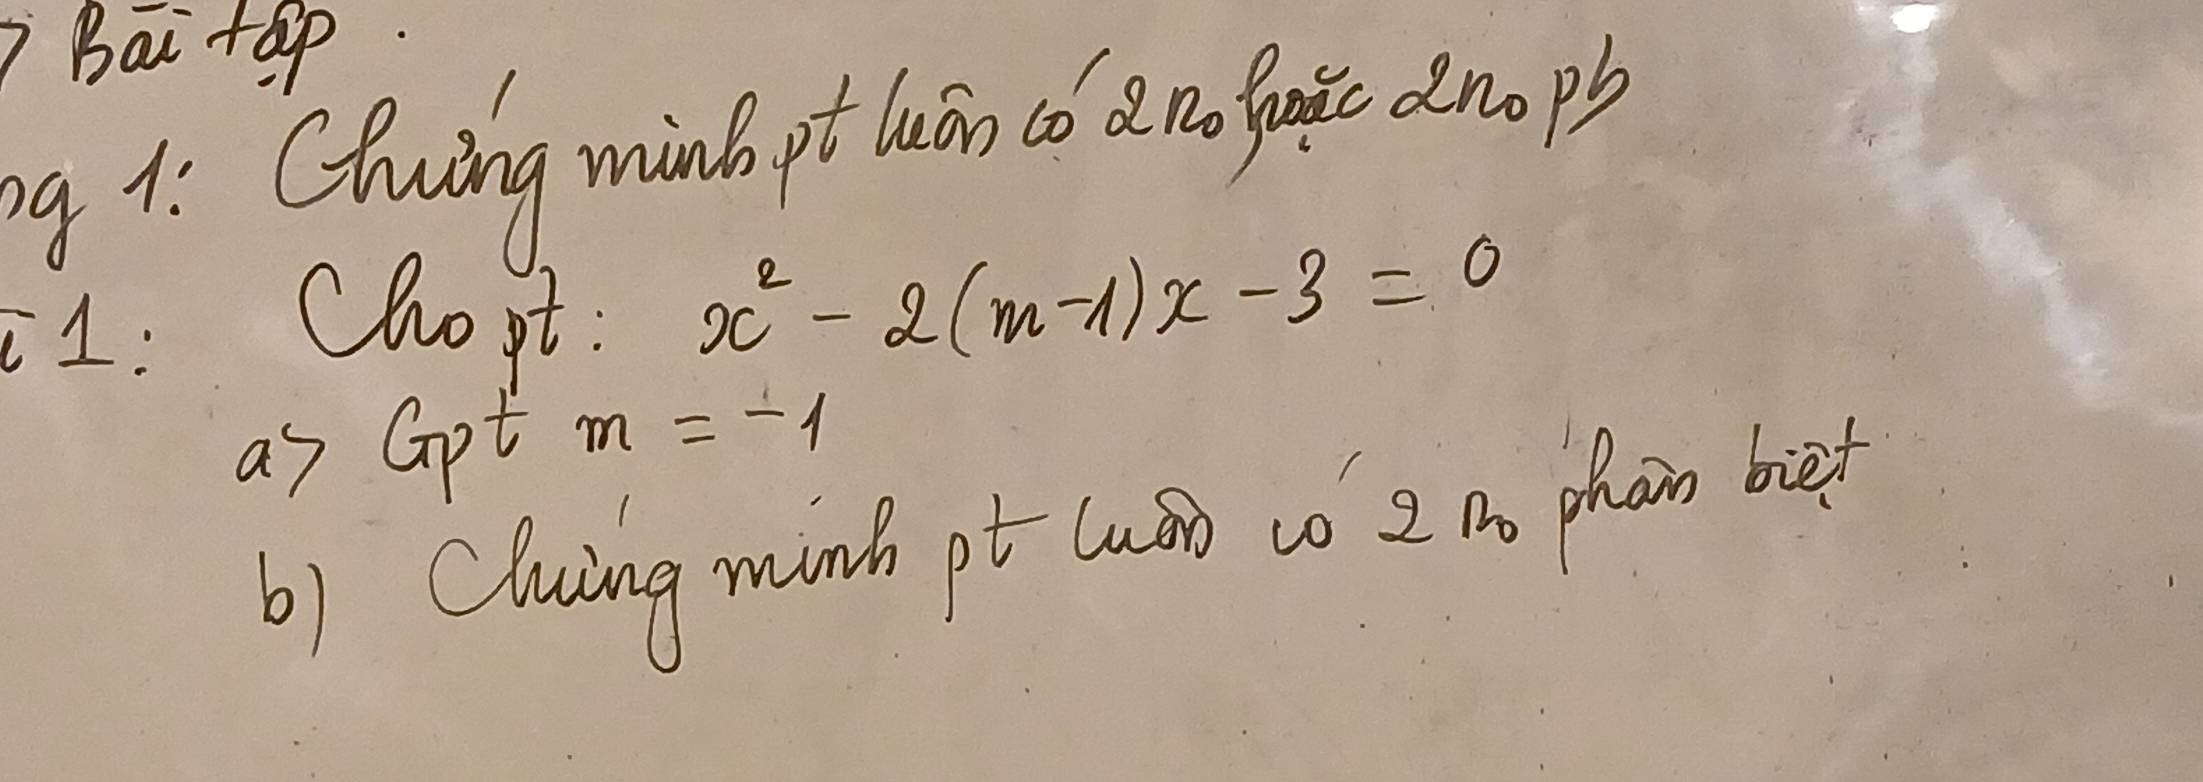 Bài tập.
1: Chứng minh pt luôn có 2 n₀ hoặc 2 n₀ pb
1: Cho pt: x² - 2(m-1)x - 3 = 0
a> Gpt m = -1
b) Chứng minh pt luôn có 2 n₀ phân biệt